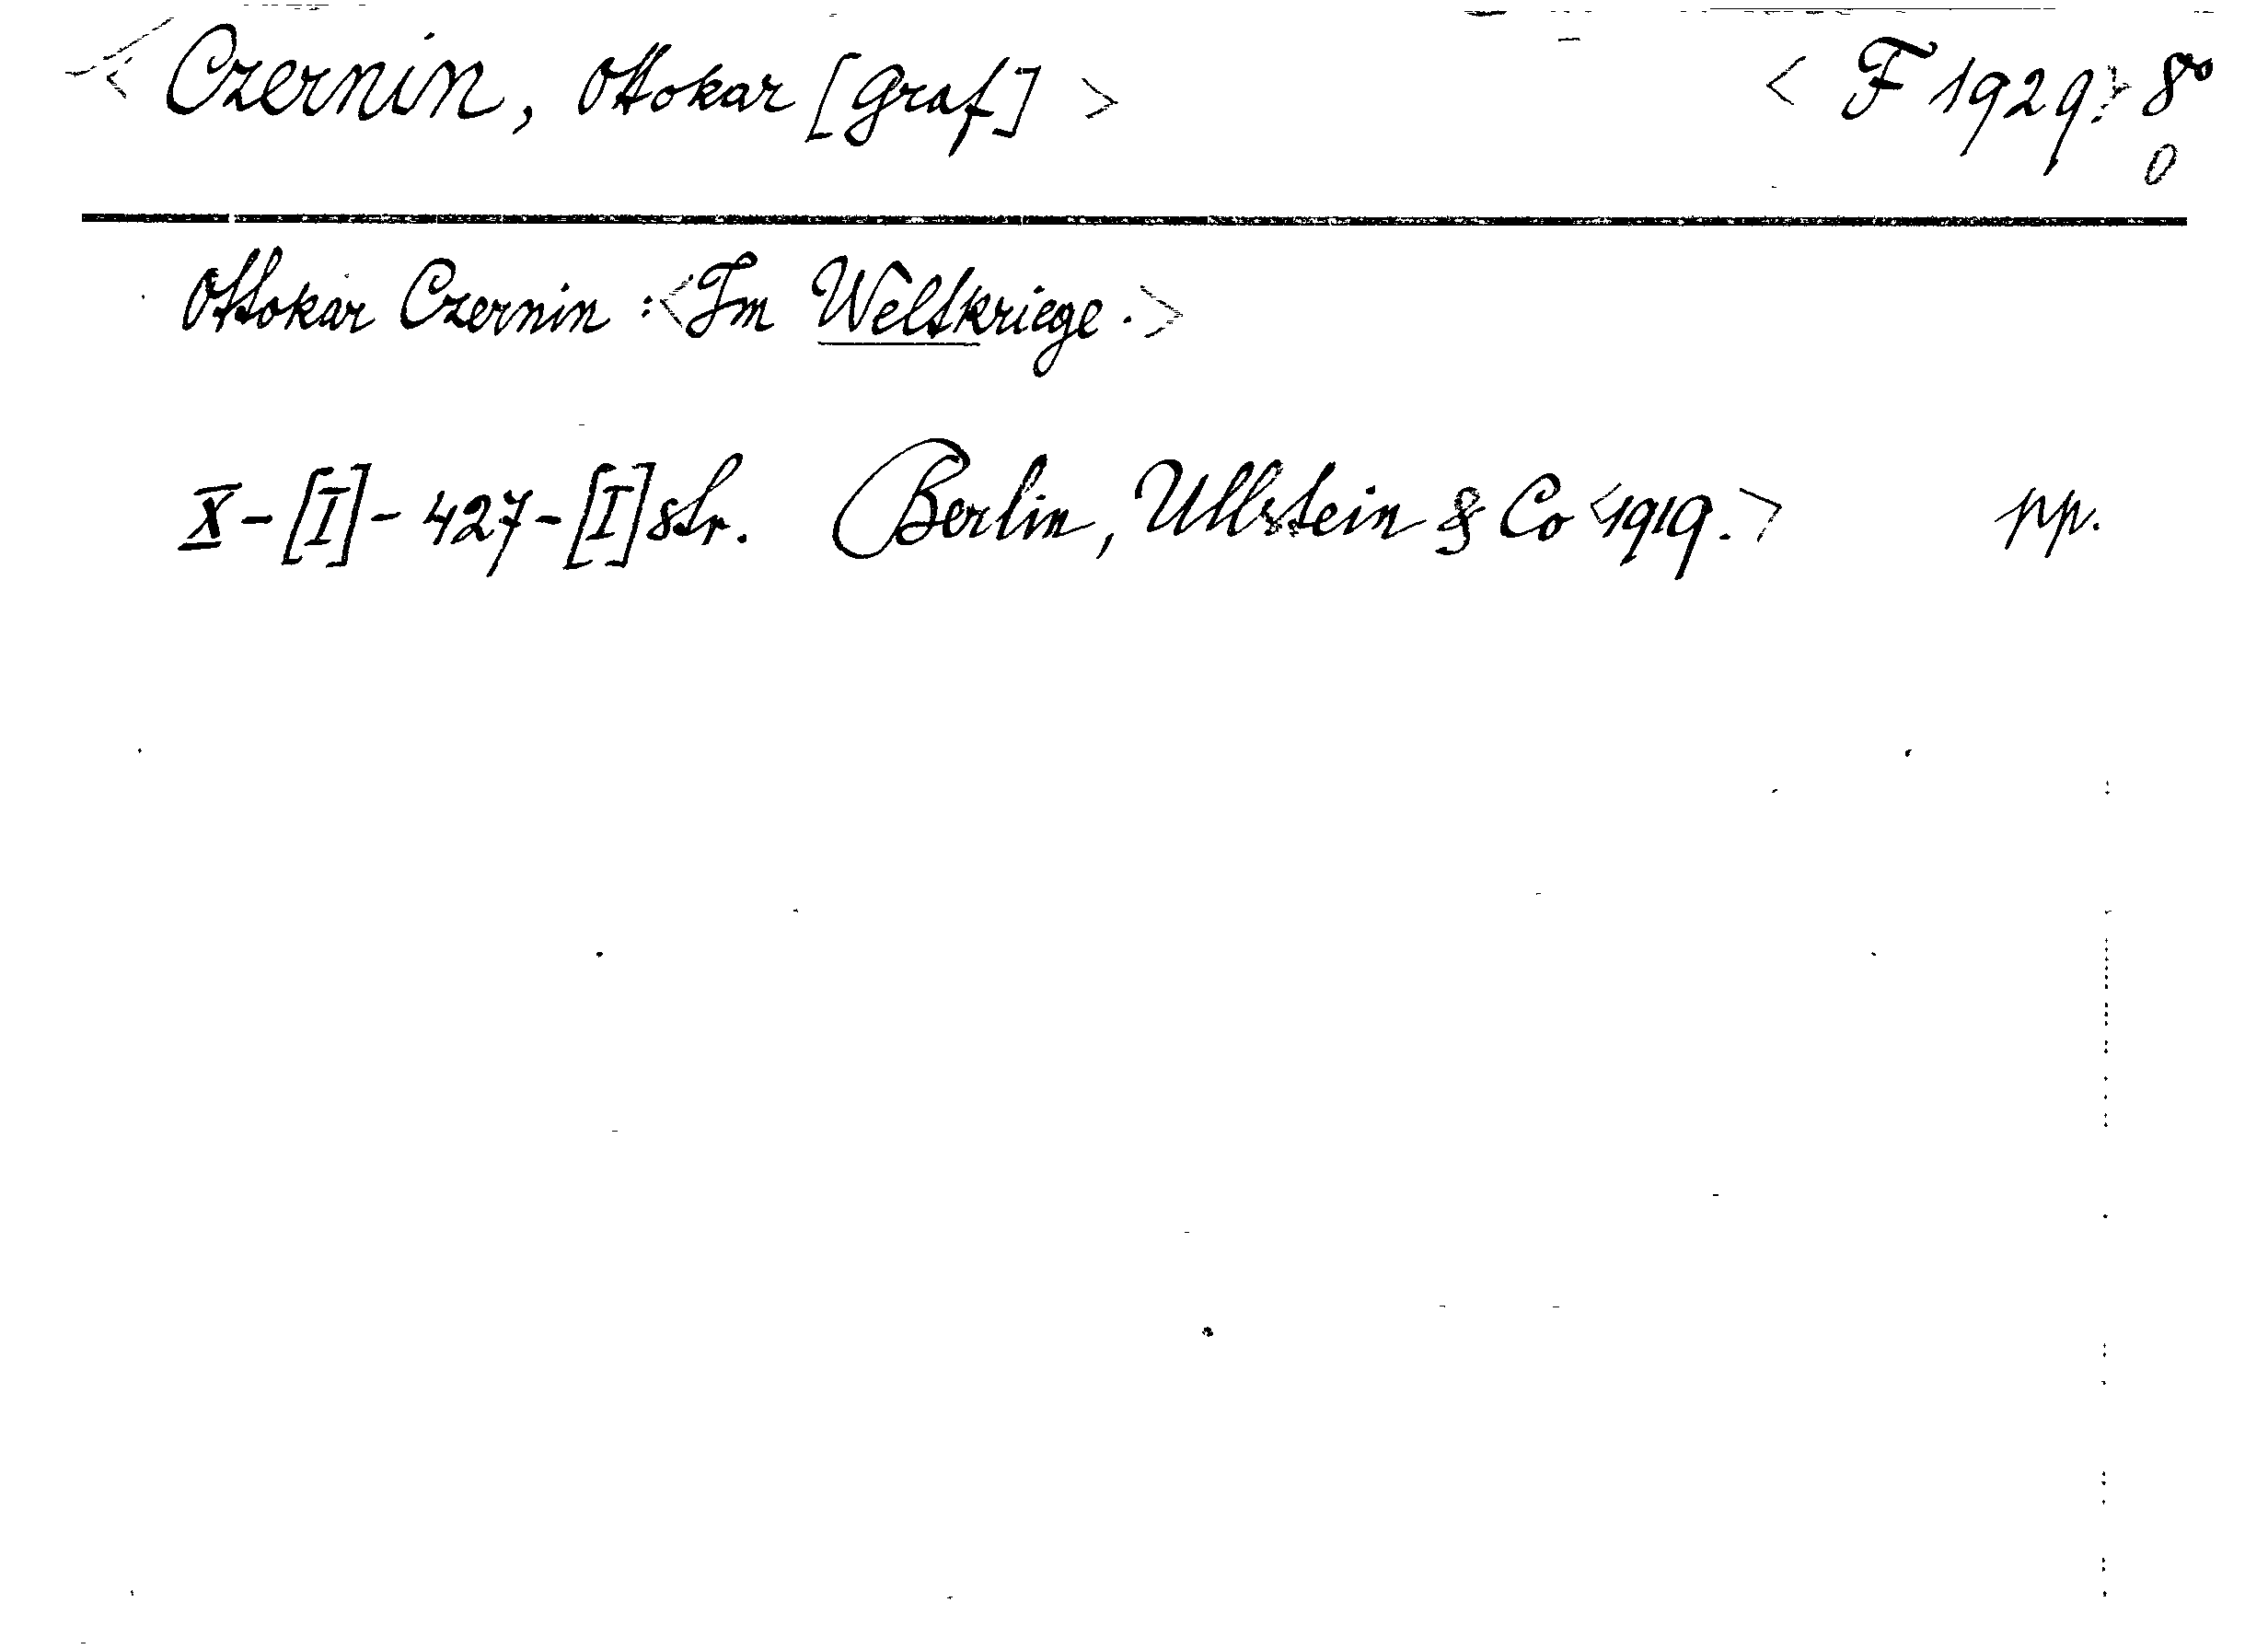 < Czernin, Ottokar [Graf] > < F 1929 > 8vo
0
Ottokar Czernin : < Im Weltkriege . >
X - [I] - 427 - [I] str. Berlin, Ullstein & Co < 1919. > pp.